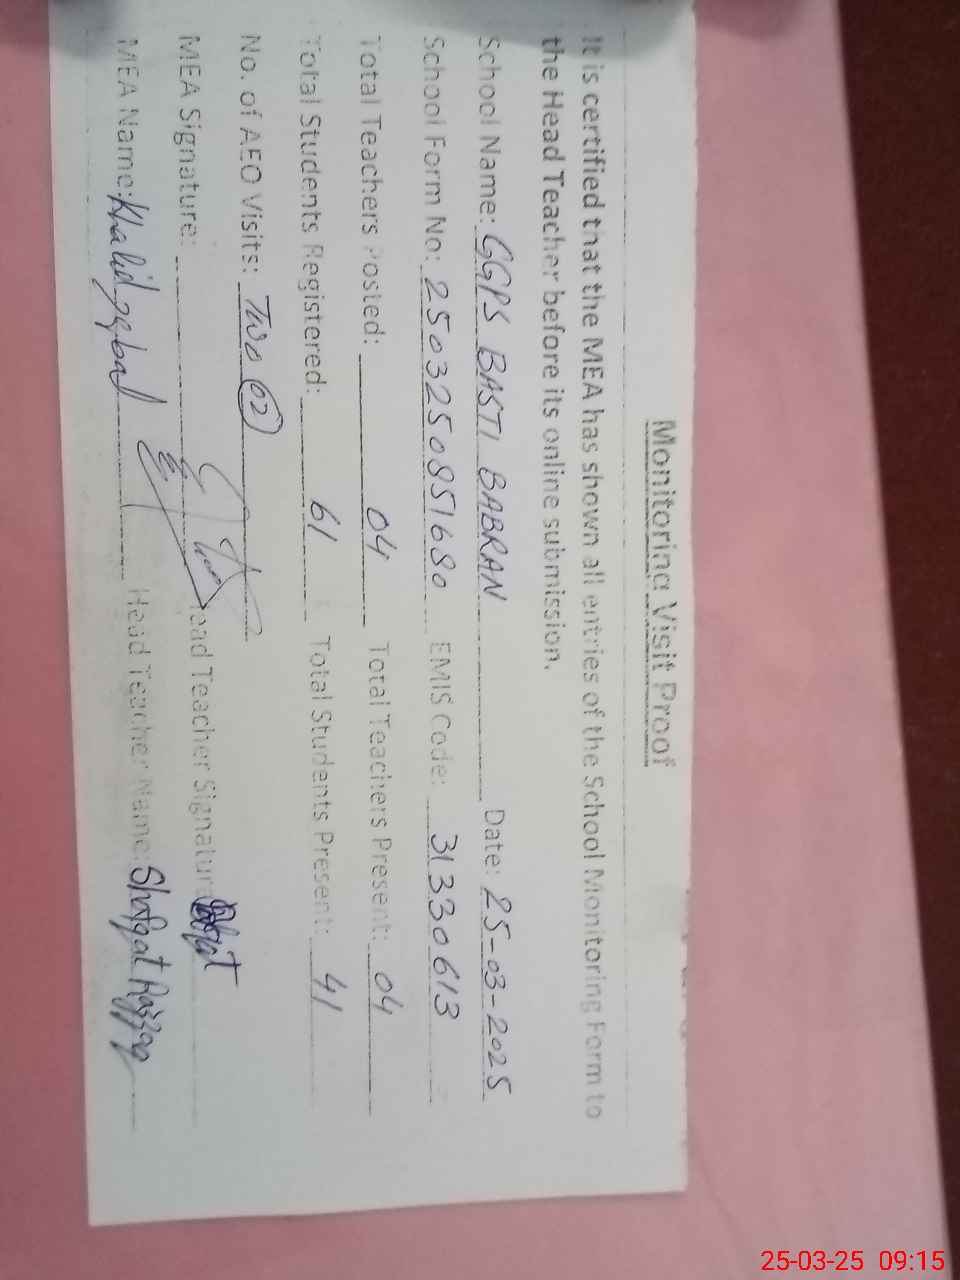 Monitoring Visit Proof
It is certified that the MEA has shown all entries of the School Monitoring Form to
the Head Teacher before its online submission.
School Name: GGPS BASTI BABRAN Date: 25-03-2025
School Form No: 25032508516 80 EMIS Code: 31330613
Total Teachers Posted: 04 Total Teachers Present: 04
Total Students Registered: 61 Total Students Present: 41
No. of AEO Visits: Two 02
MEA Signature: Head Teacher Signature
MEA Name: Khalid Iqbal Head Teacher Name: Shafqat Razzaq
25-03-25 09:15